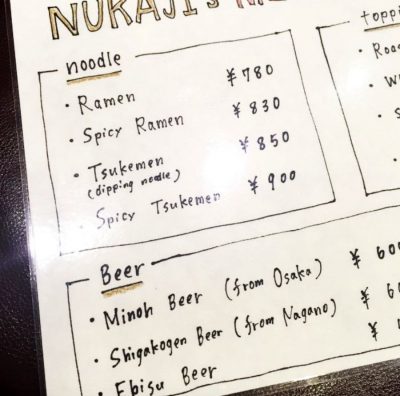 NUKAJI's
noodle
・Ramen ¥780
・Spicy Ramen ¥830
・Tsukemen ¥850
(dipping noodle)
・Spicy Tsukemen ¥900
Beer
・Minoh Beer (from Osaka) ¥
・Shigakogen Beer (from Nagano) ¥
・Ebisu Beer ¥